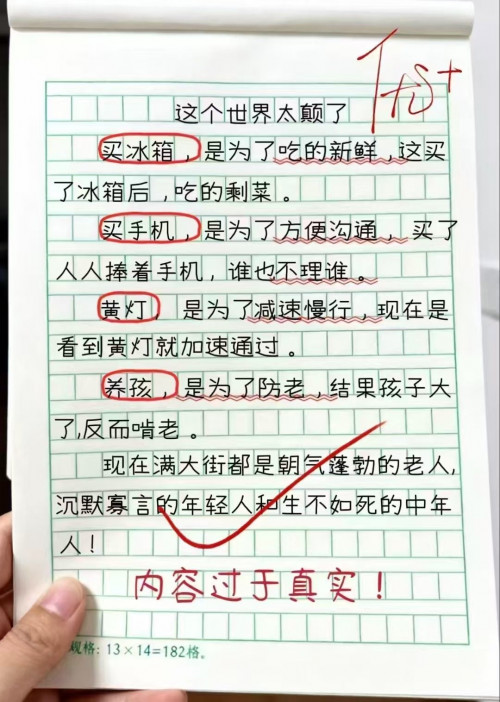 优+
这个世界太颠了
买冰箱，是为了吃的新鲜，这买
了冰箱后，吃的剩菜。
买手机，是为了方便沟通，买了
人人捧着手机，谁也不理谁。
黄灯，是为了减速慢行，现在是
看到黄灯就加速通过。
养孩，是为了防老，结果孩子大
了，反而啃老。
现在满大街都是朝气蓬勃的老人，
沉默寡言的年轻人和生不如死的中年
人！
内容过于真实！
规格：13×14=182格。